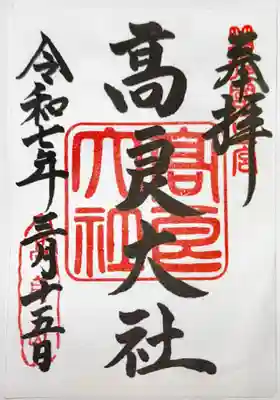 奉拝
高良大社
令和七年三月十五日
高良大社